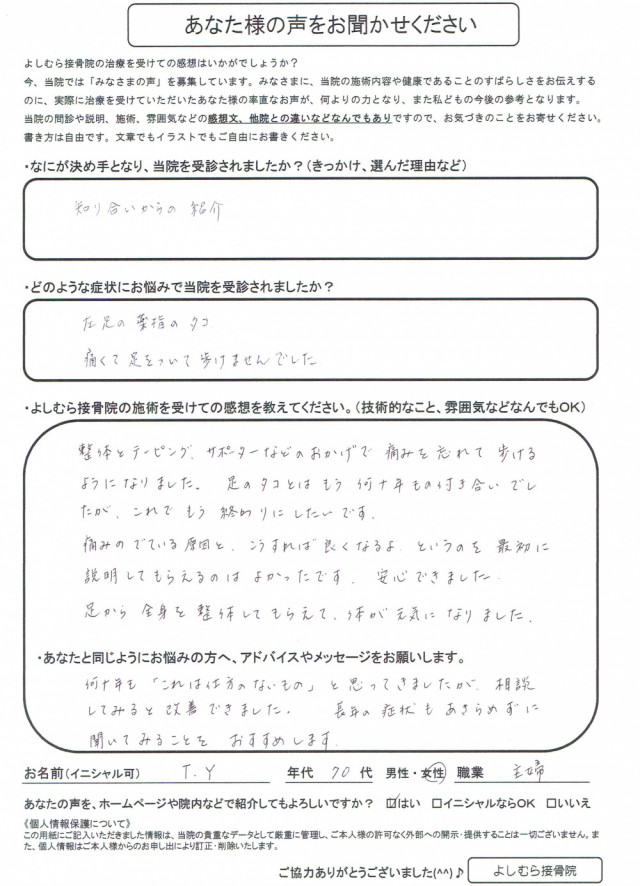 あなた様の声をお聞かせください
よしむら接骨院の治療を受けての感想はいかがでしょうか?
今、当院では「みなさまの声」を募集しています。みなさまに、当院の施術内容や健康であることのすばらしさをお伝えする
のに、実際に治療を受けていただいたあなた様の率直なお声が、何よりの力となり、また私どもの今後の参考となります。
当院の問診や説明、施術、雰囲気などの感想文、他院との違いなどなんでもありですので、お気づきのことをお寄せください。
書き方は自由です。文章でもイラストでもご自由にお書きください。
・なにが決め手となり、当院を受診されましたか?(きっかけ、選んだ理由など)
知り合いからの 紹介
・どのような症状にお悩みで当院を受診されましたか?
左足の 薬指の タコ
痛くて 足をついて 歩けませんでした
・よしむら接骨院の施術を受けての感想を教えてください。(技術的なこと、雰囲気などなんでもOK)
整体と テーピング、サポーターなどの おかげで 痛みを 忘れて 歩ける
ようになりました。 足の タコとは もう 何十年もの付き合い でし
たが、これで もう 終わりに したいです。
痛みの でている 原因と、こうすれば 良くなるよ、というのを 最初に
説明してもらえるのは よかったです。 安心できました。
足から 全身を 整体してもらえて、体が 元気に なりました。
・あなたと同じようにお悩みの方へ、アドバイスやメッセージをお願いします。
何十年も 「これは仕方のないもの」と 思ってきましたが、相談
してみると 改善できました。 長年の 症状も あきらめずに
聞いてみることを おすすめします。
お名前(イニシャル可) T.Y 年代 70 代 男性・女性 職業 主婦
あなたの声を、ホームページや院内などで紹介してもよろしいですか? ☑はい □イニシャルならOK □いいえ
《個人情報保護について》
この用紙にご記入いただきました情報は、当院の貴重なデータとして厳重に管理し、ご本人様の許可なく外部への開示・提供することは一切ございません。ま
た、個人情報はご本人様からのお申し出により訂正・削除いたします。
ご協力ありがとうございました(^^)♪ よしむら接骨院